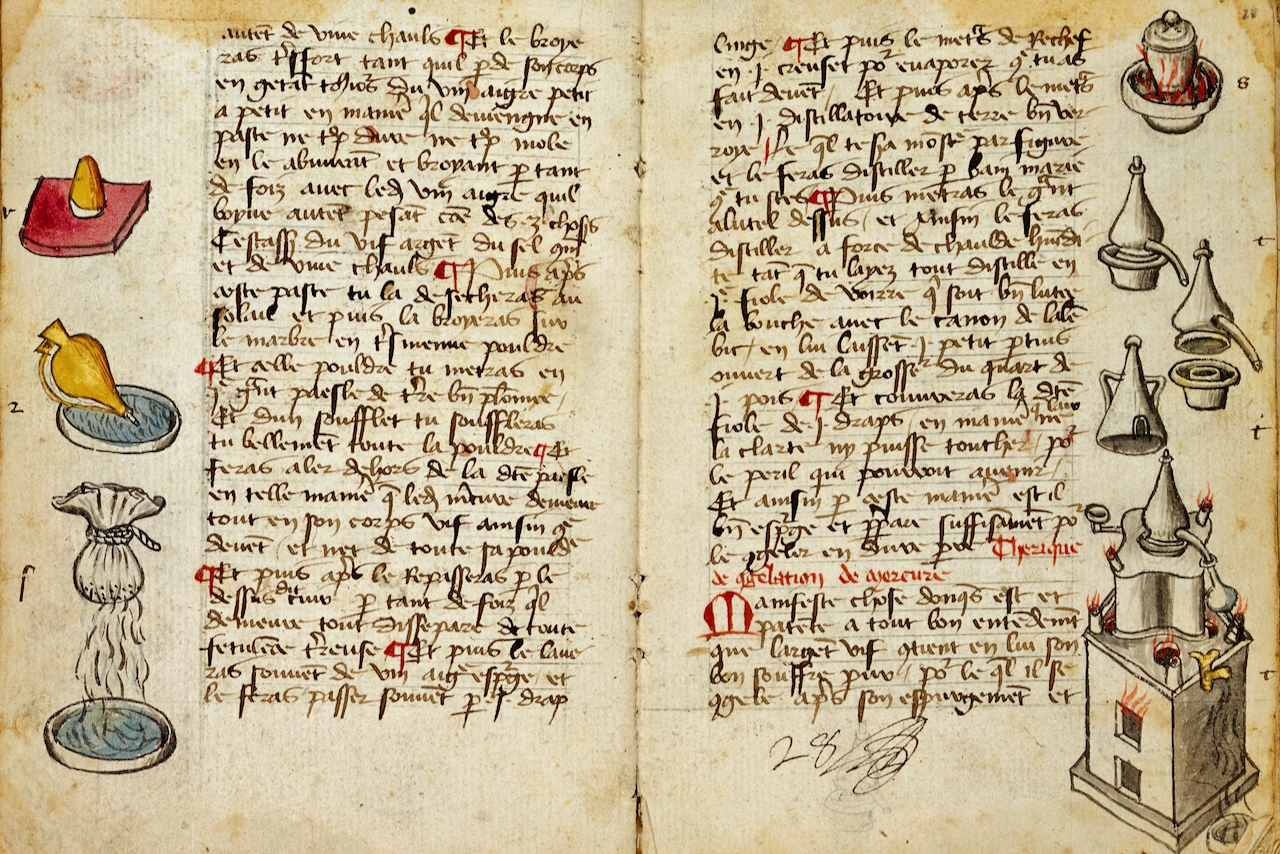 autet de vive chauls ¶ Et le broye
ras t'ffort tant quil p de son corps
en getat du vin aigre petit
a petit en manie ql deviengne en
paste ne tp dure ne tp mole
en le abuvrant et broyant p tant
de foiz avec led vin aigre quil
boyve autet pesat des 3 choses
Cestass du vif arget du sel
et de vive chauls ¶ Puis aps
ceste paste tu la desecheras au
solail et puis la broyeras sur
le marbre en pouldre
¶ Et celle pouldre tu metras en
j grat paesle de t're bn plomee
Et dun soufflet tu souffleras
tu bellemet toute la pouldre ¶ Et
feras aler dehors de la dte paesle
en telle manie q led m'cure demeure
tout en son corps vif ainsin q
devet et net de toute sa pouldre
¶ Et puis aps le Repasseras p le
dessus p tant de foiz ql
demeure tout dissepare de toute
t'reuse ¶ Et puis le lave
ras souvet de vin aig' et
le feras passer souvet p j drap
linge ¶ Et puis le metts de Rechef
en j creuset po' evaporer q tu as
fait devet Et puis aps le metts
en j distillatoire de terre bn ver
roye le ql te sa most'e par figure
et le feras distiller p bain marie
q tu sces ¶ Puis metras le grat
alutel dessus et ainsin le feras
distiller a force de chaulde humdi
te tat q tu layez tout distille en
j fiole de voirre q soit bn lutee
la bouche avec le canon de lale
bic en lui laisset j petit p'tius
ouvert de la grosse' du quart de
j pois ¶ Et couveras la dte
fiole de j draps en manie q
la clarte ny puisse toucher po'
le peril qui pourroit avenir
Et ainsin p ceste manie est il
bn esp'ge et ppare suffisamet po'
le qgeler en Therique
de qgelation de mercure
Manifeste chose donqs est et
patete a tout bon entedemt
que larget vif qtient en lui son
bon souffre pur po' le ql il se
qgele aps son espurgemet et
28